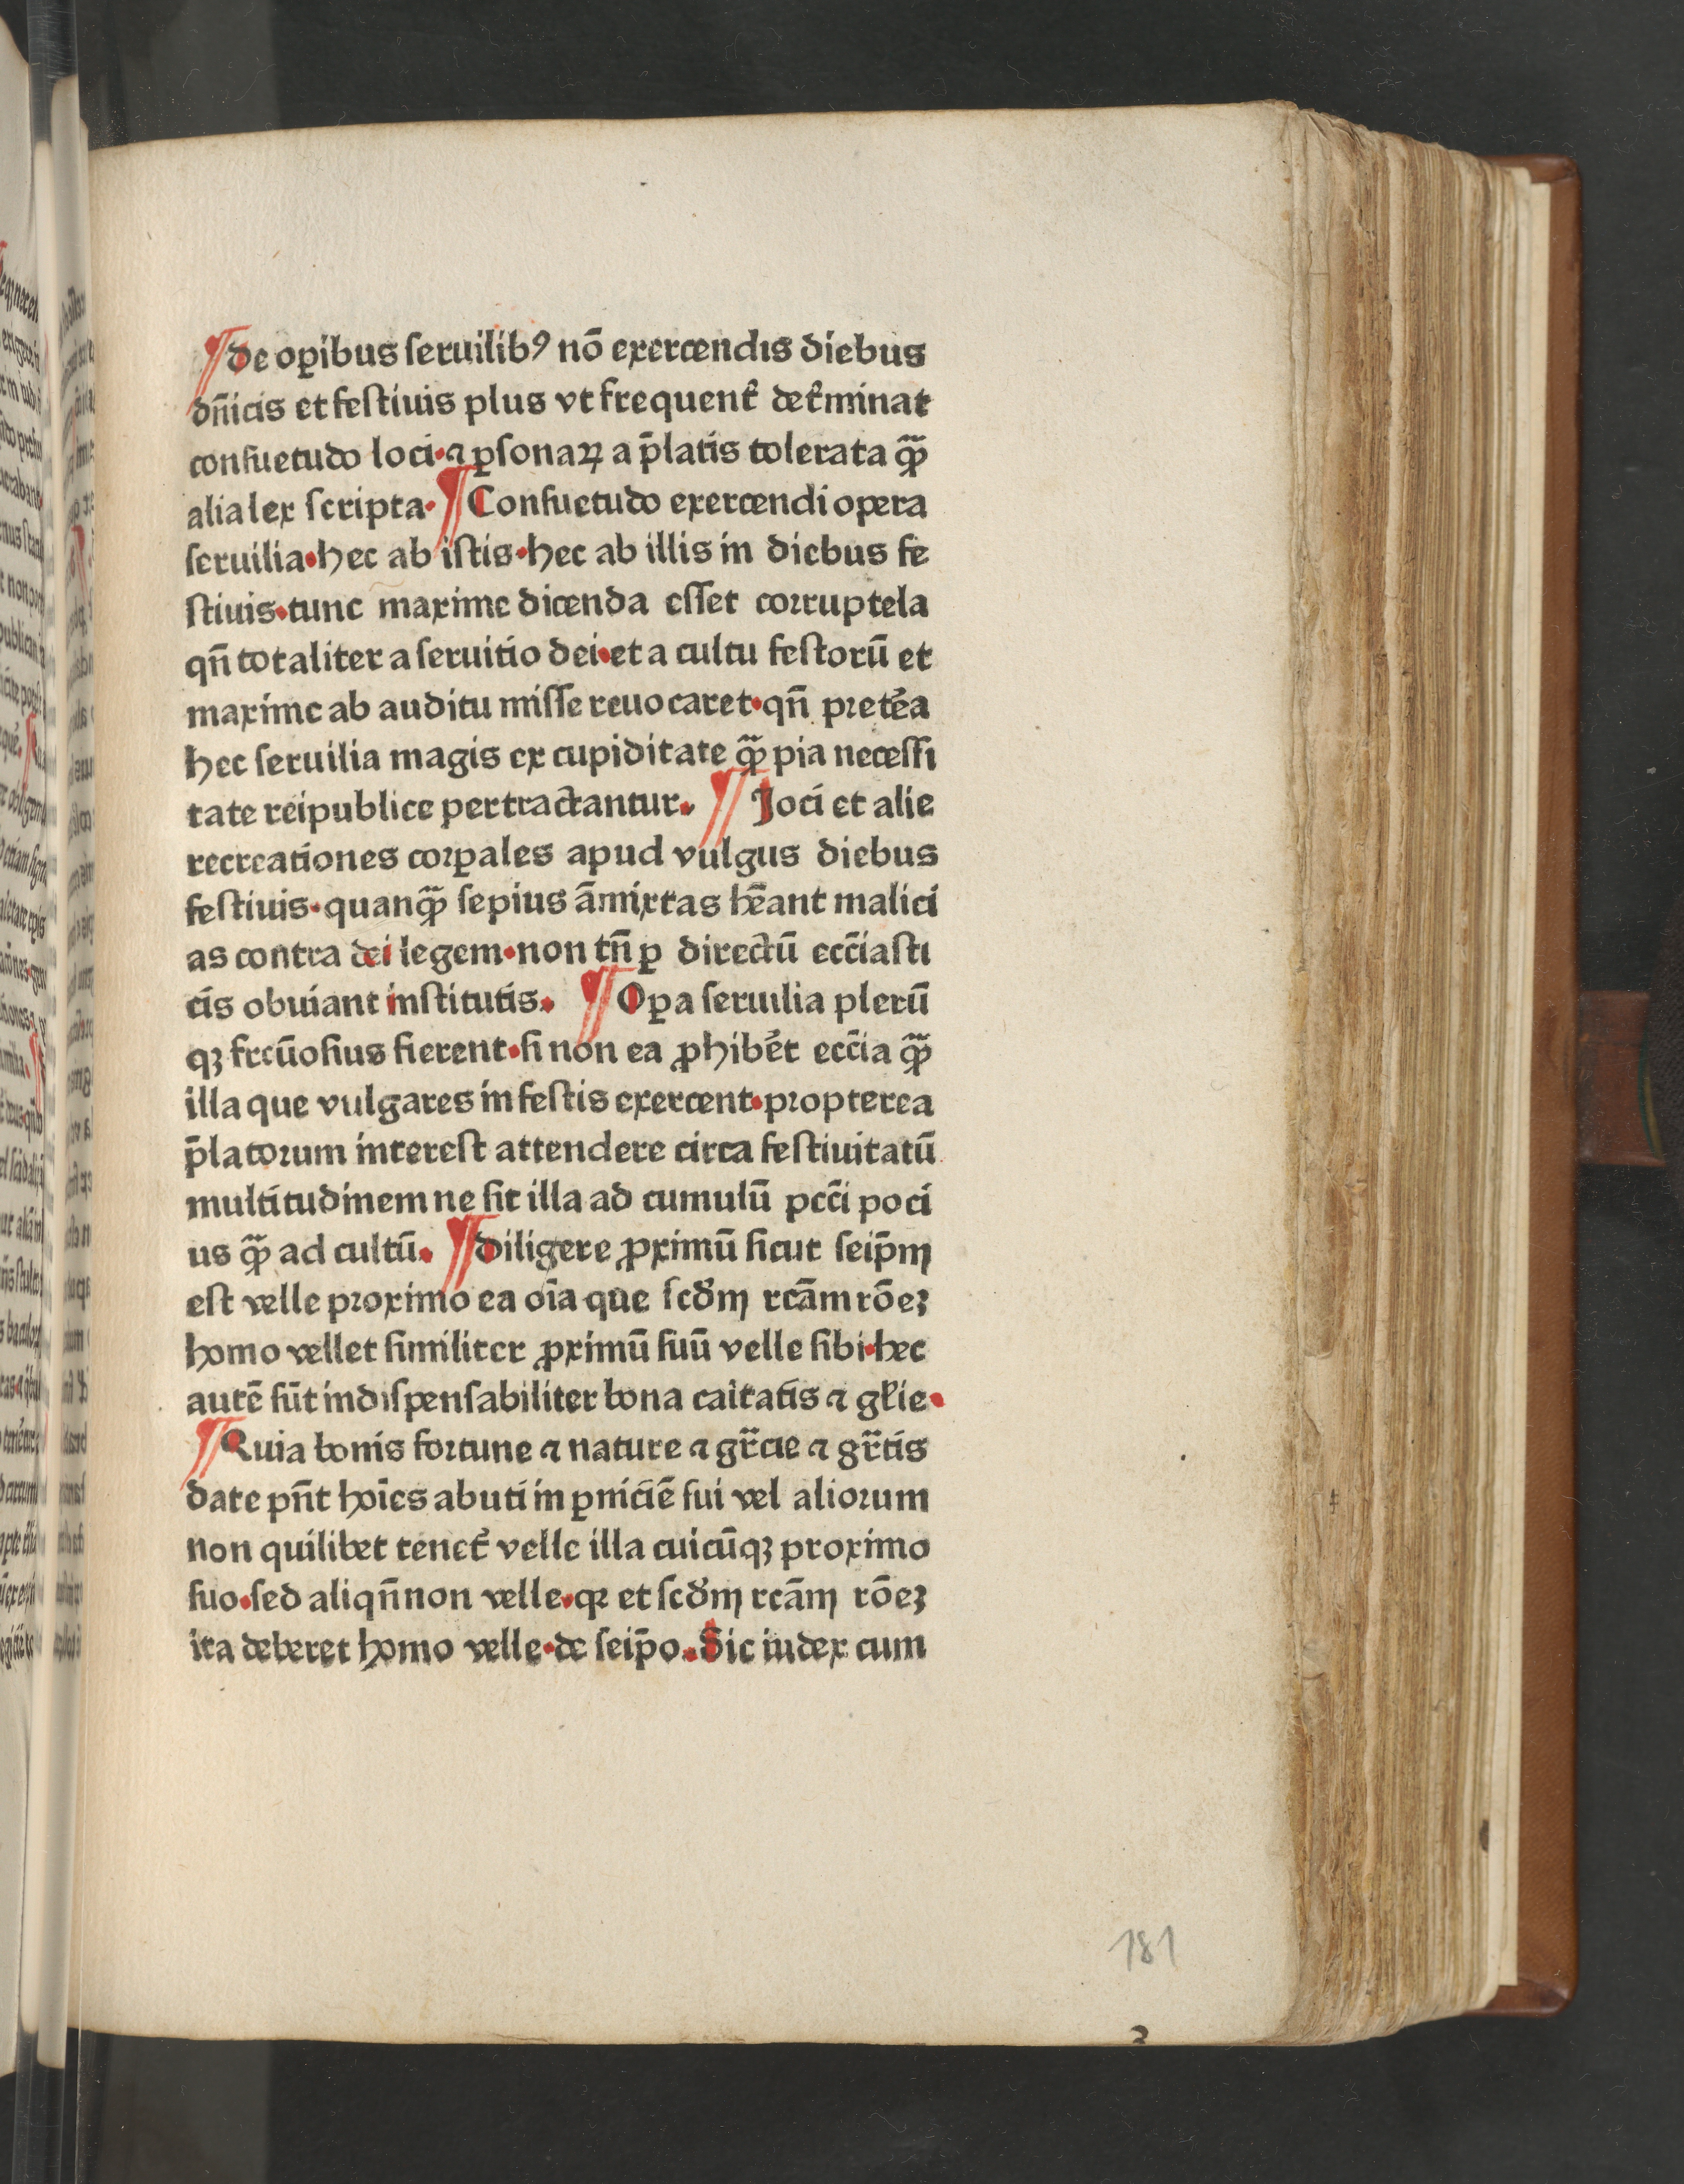 ¶ De oꝑibus ſeruilibꝰ nō exercendis diebus
dn̄icis et feſtiuis plus vt frequent̄ det̄minat
conſuetudo loci·⁊ ꝑſonaꝝ a p̄latis tolerata qꝫ̄
alia lex ſcripta· ¶ Conſuetudo exercendi opera
ſeruilia·hec ab iſtis·hec ab illis in diebus fe
ſtiuis·tunc maxime dicenda eſſet coꝛruptela
qn̄ totaliter a ſeruitio dei·et a cultu feſtorū et
maxime ab auditu miſſe reuocaret·qn̄ pꝛetēa
hec ſeruilia magis ex cupiditate qꝫ̄ pia neceſſi
tate reipublice pertractantur· ¶ Joci et alie
recreationes coꝛꝑales apud vulgus diebus
feſtiuis·quanqꝫ̄ ſepius āmixtas hēant malici
as contra dei legem·non tn̄ ꝑ directū eccīaſti
cis obuiant inſtitutis· ¶ Oꝑa ſeruilia plerū
qꝫ frcūoſius fierent·ſi non ea ꝓhibēt eccīa qꝫ̄
illa que vulgares in feſtis exercent·pꝛopterea
p̄latoꝛum intereſt attendere circa feſtiuitatū
multitudinem ne ſit illa ad cumulū pccī poci
us qꝫ̄ ad cultū· ¶ Diligere ꝓximū ſicut ſeip̄m
eſt velle pꝛoximo ea oīa que ſcd̄m rcām rōeꝫ
homo vellet ſimiliter ꝓximū ſuū velle ſibi·hec
autē ſūt indiſpenſabiliter bona caītatis ⁊ gl̄ie·
¶ Quia bonis foꝛtune ⁊ nature ⁊ gr̄cie ⁊ gr̄tis
date pn̄t hoīes abuti in ꝑniciē ſui vel alioꝛum
non quilibet tenet̄ velle illa cuicūqꝫ proximo
ſuo·ſed aliqn̄ non velle·qꝛ et ſcd̄m rcām rōeꝫ
ita deberet homo velle·de ſeip̄o·Sic iudex cum
181